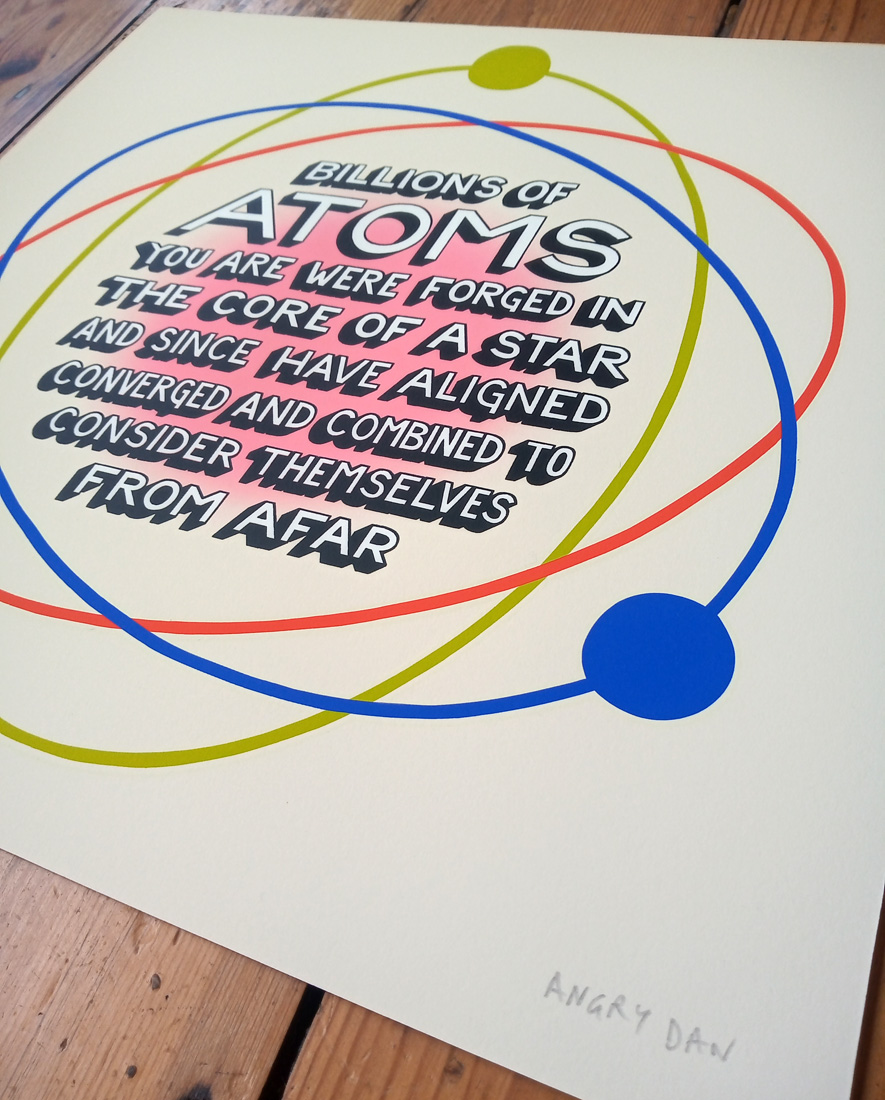 BILLIONS OF
ATOMS
YOU ARE WERE FORGED IN
THE CORE OF A STAR
AND SINCE HAVE ALIGNED
CONVERGED AND COMBINED TO
CONSIDER THEMSELVES
FROM AFAR
ANGRY DAN